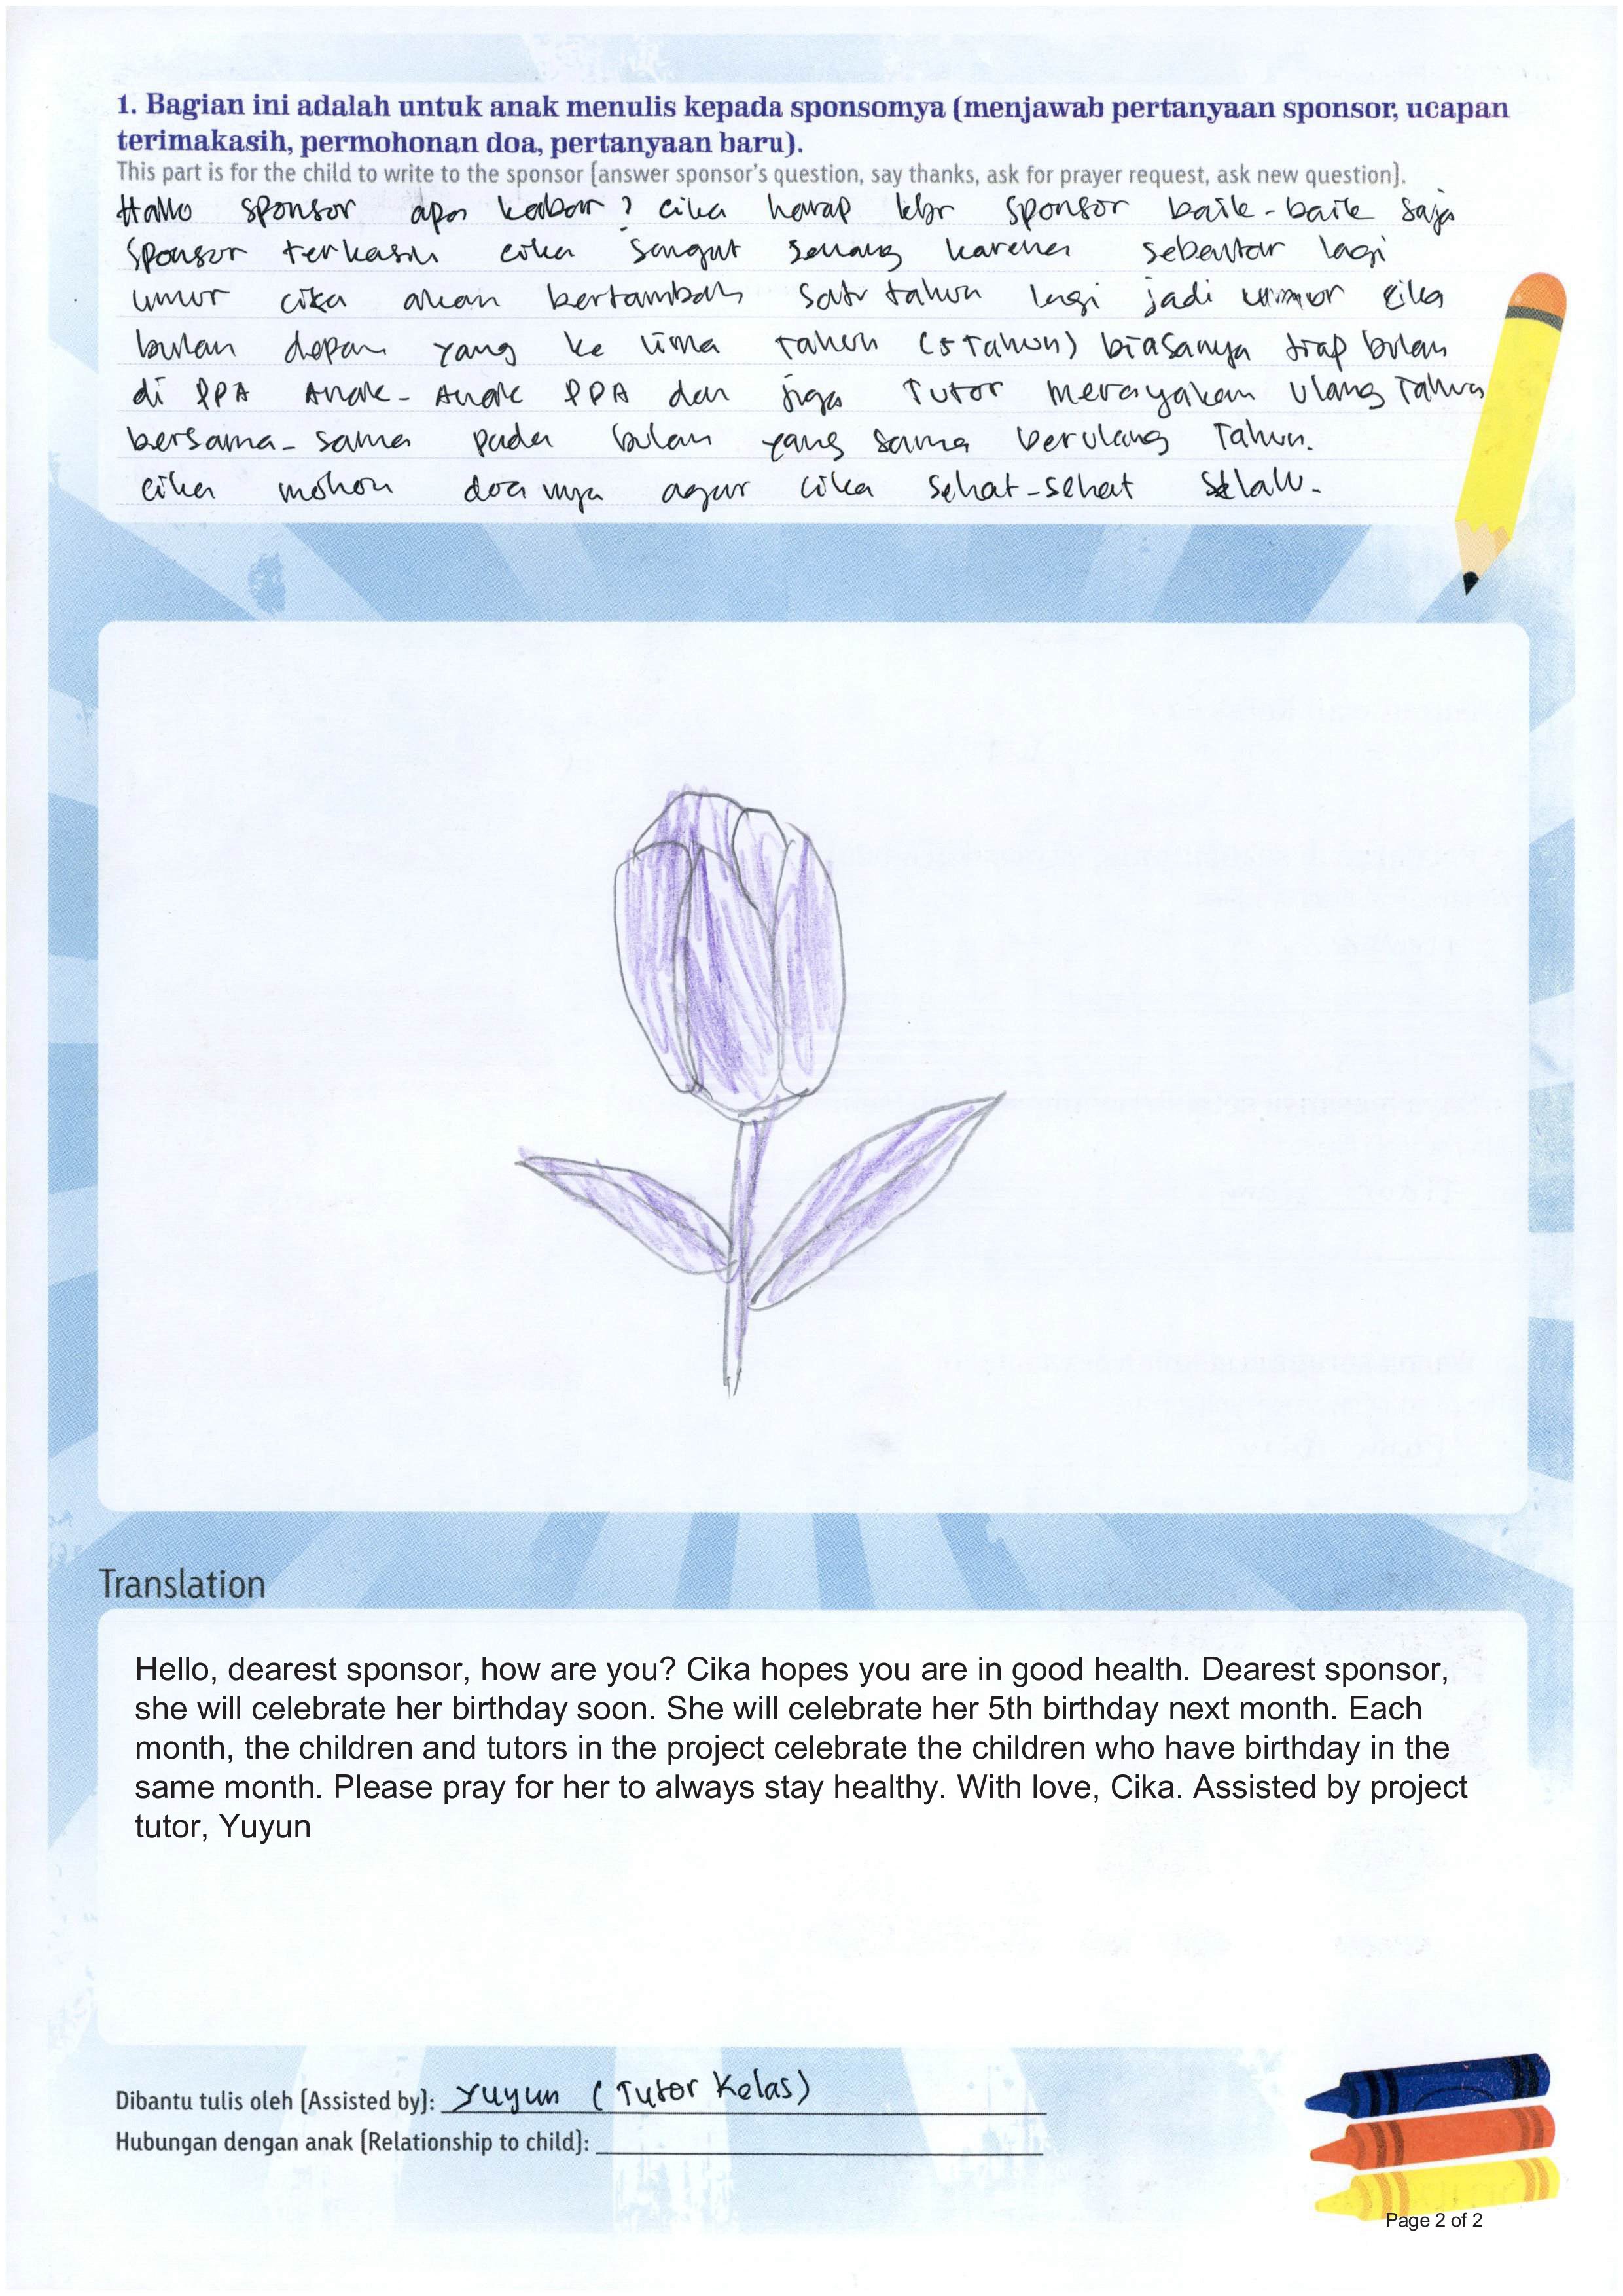 1. Bagian ini adalah untuk anak menulis kepada sponsornya (menjawab pertanyaan sponsor, ucapan
terimakasih, permohonan doa, pertanyaan baru).
This part is for the child to write to the sponsor (answer sponsor's question, say thanks, ask for prayer request, ask new question).
Hallo sponsor apa kabar? cika harap kbr sponsor baik-baik saja
Sponsor terkasih cika sangat senang karena sebentar lagi
umur cika akan bertambah satu tahun lagi jadi umur cika
bulan depan yang ke lima tahun (5 Tahun) biasanya tiap bulan
di PPA Anak-Anak PPA dan juga Tutor merayakan Ulang Tahun
bersama-sama pada bulan yang sama berulang Tahun.
cika mohon doanya agar cika sehat-sehat selalu.
Translation
Hello, dearest sponsor, how are you? Cika hopes you are in good health. Dearest sponsor,
she will celebrate her birthday soon. She will celebrate her 5th birthday next month. Each
month, the children and tutors in the project celebrate the children who have birthday in the
same month. Please pray for her to always stay healthy. With love, Cika. Assisted by project
tutor, Yuyun
Dibantu tulis oleh (Assisted by): Yuyun (Tutor Kelas)
Hubungan dengan anak (Relationship to child):
Page 2 of 2